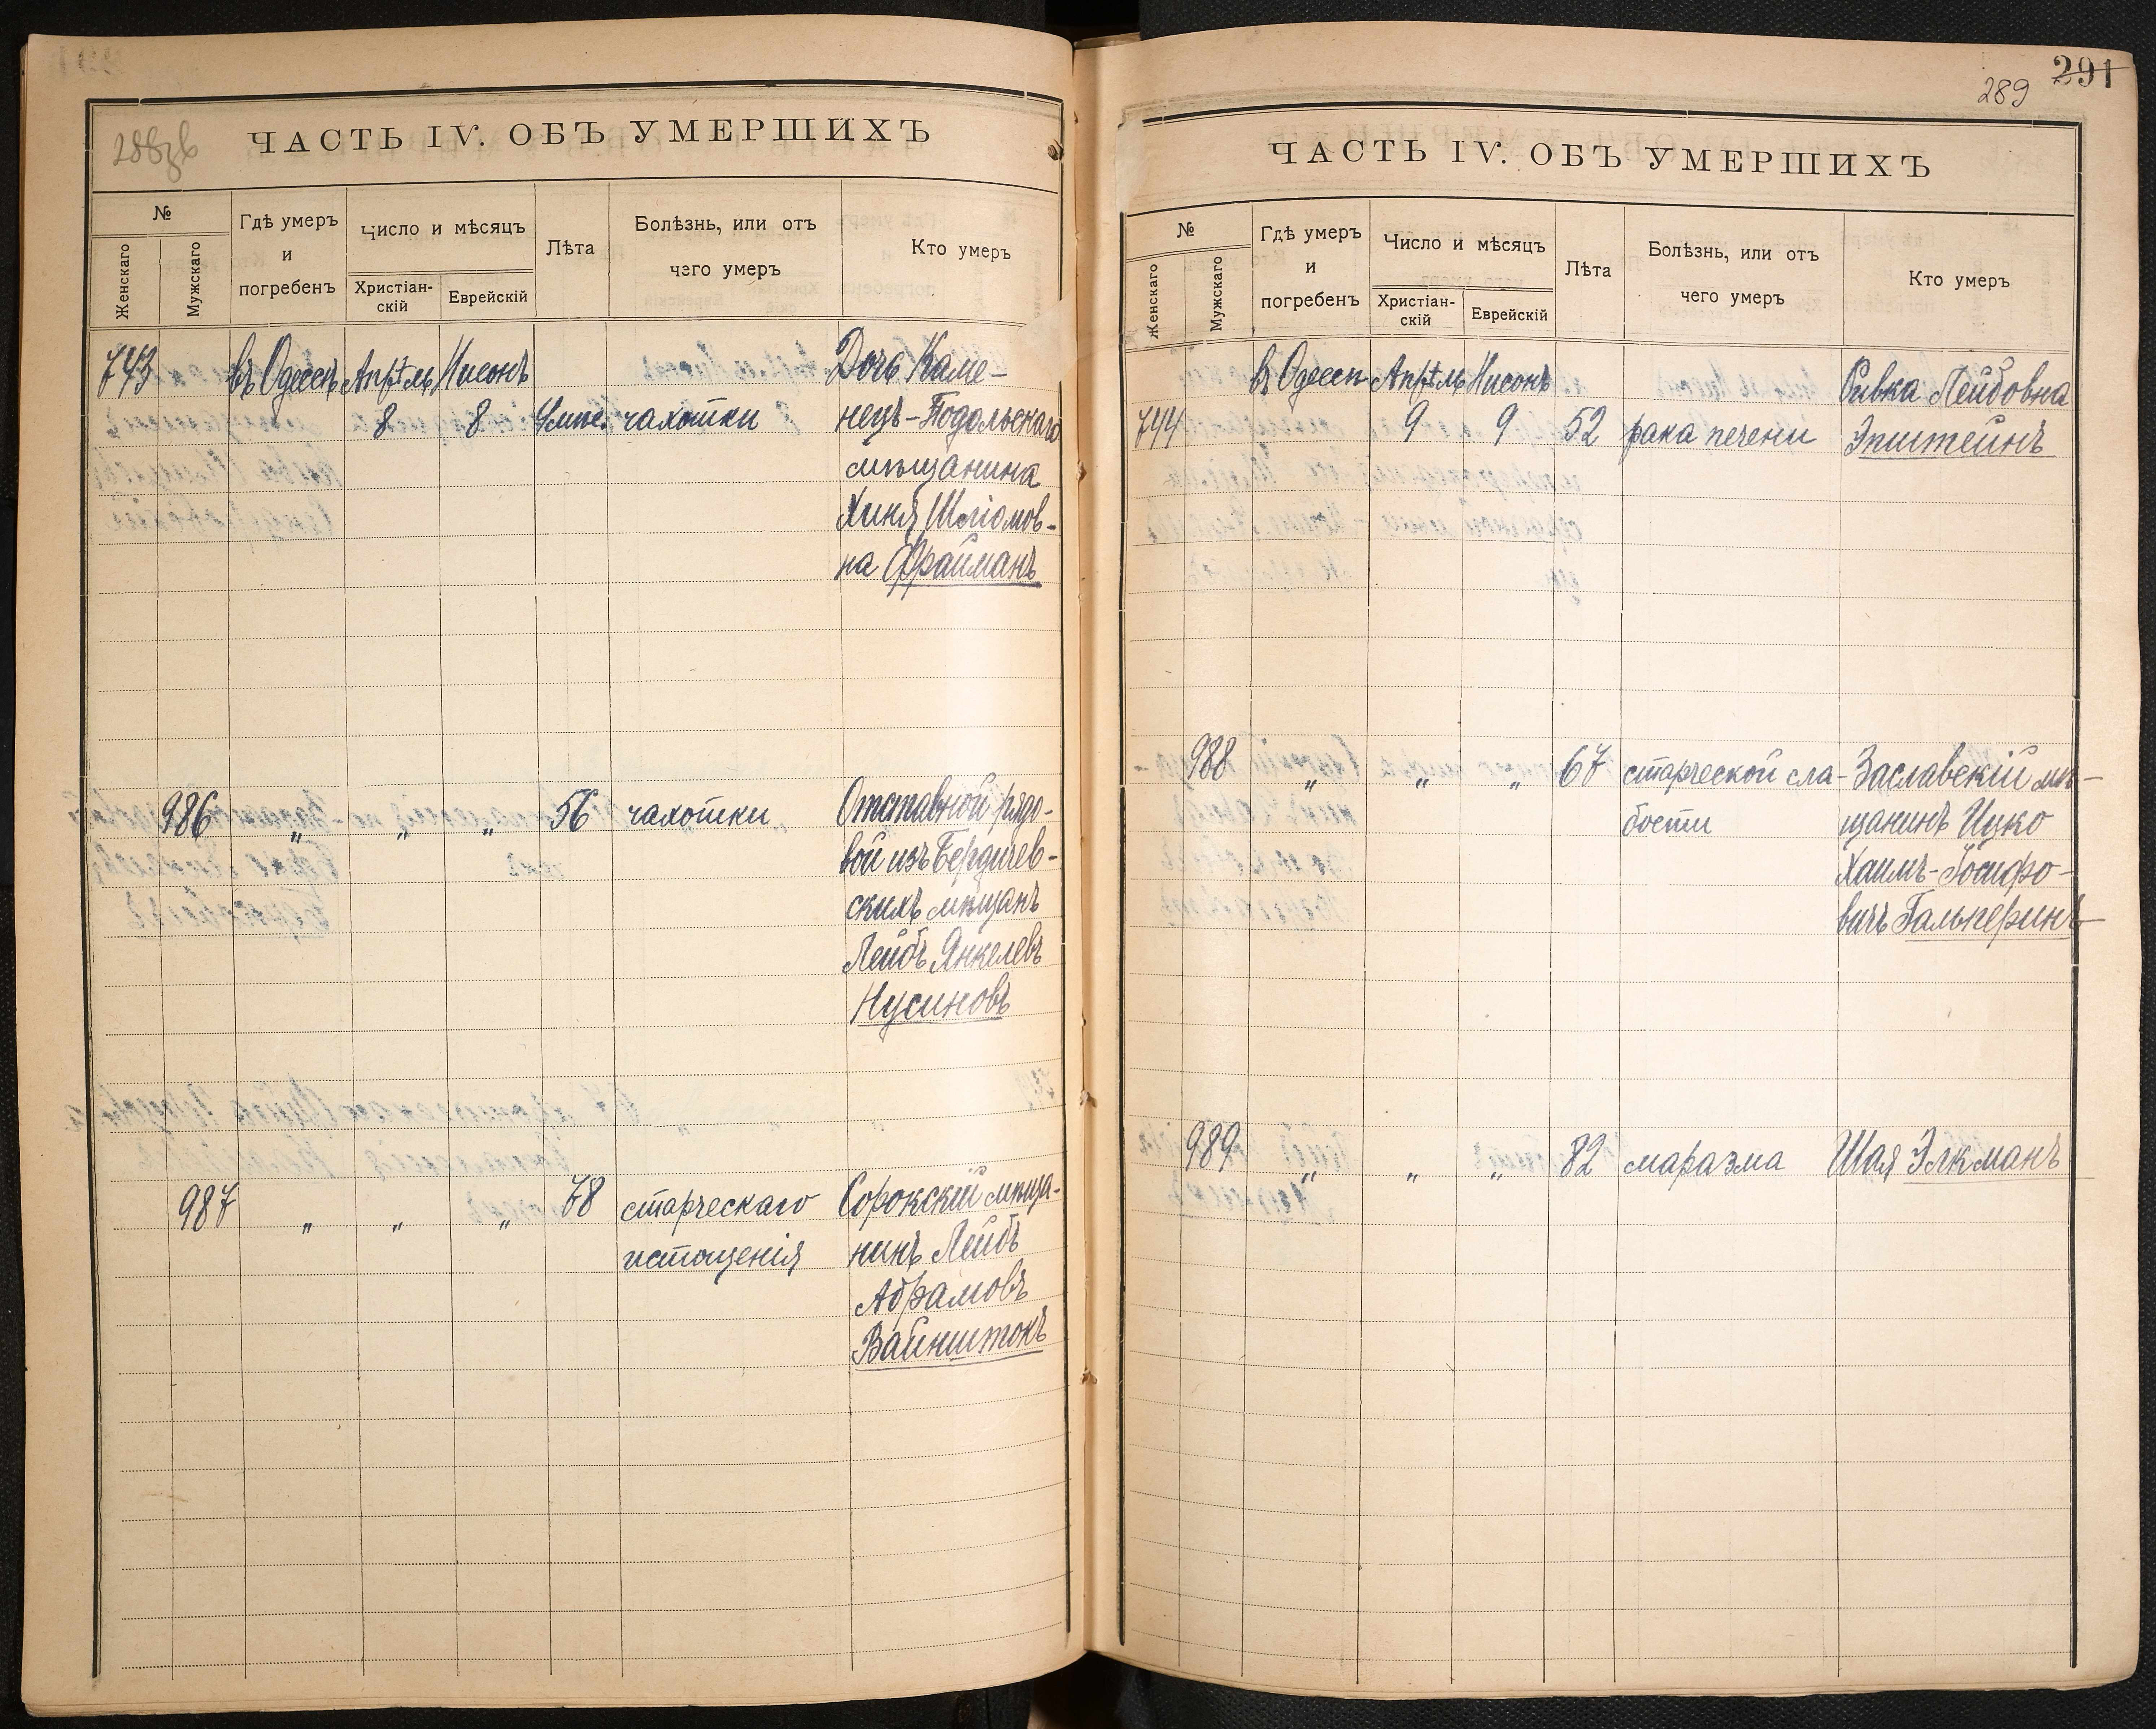 288об
ЧАСТЬ IV. ОБЪ УМЕРШИХЪ
№
Женскаго
Мужскаго
Гдѣ умеръ
и
погребенъ
Число и мѣсяцъ
Христіан-
скій
Еврейскій
Лѣта
Болѣзнь, или отъ
чего умеръ
Кто умеръ
743 въ Одессѣ Апрѣль Нисонъ Дочь Каме-
8 8 чахотки нецъ-Подольскаго
мѣщанина
Хиня Шліомов-
на Фрайманъ
986 „ „ „ 56 чахотки Отставной рядо-
вой изъ Бердичев-
скихъ мѣщанъ
Лейбъ Янкелевъ
Нусиновъ
987 „ „ „ 78 старческаго Сорокскій мѣща-
истощенія нинъ Лейбъ
Абрамовъ
Вайнштокъ
289 291
ЧАСТЬ IV. ОБЪ УМЕРШИХЪ
№
Женскаго
Мужскаго
Гдѣ умеръ
и
погребенъ
Число и мѣсяцъ
Христіан-
скій
Еврейскій
Лѣта
Болѣзнь, или отъ
чего умеръ
Кто умеръ
въ Одессѣ Апрѣль Нисонъ Ривка Лейбовна
744 9 9 52 рака печени Эпштейнъ
988 „ „ „ 67 старческой сла- Заславскій мѣ-
бости щанинъ Ицко
Хаимъ-Іосифо-
вичъ Гальперинъ
989 „ „ „ 82 маразма Шая Элкманъ